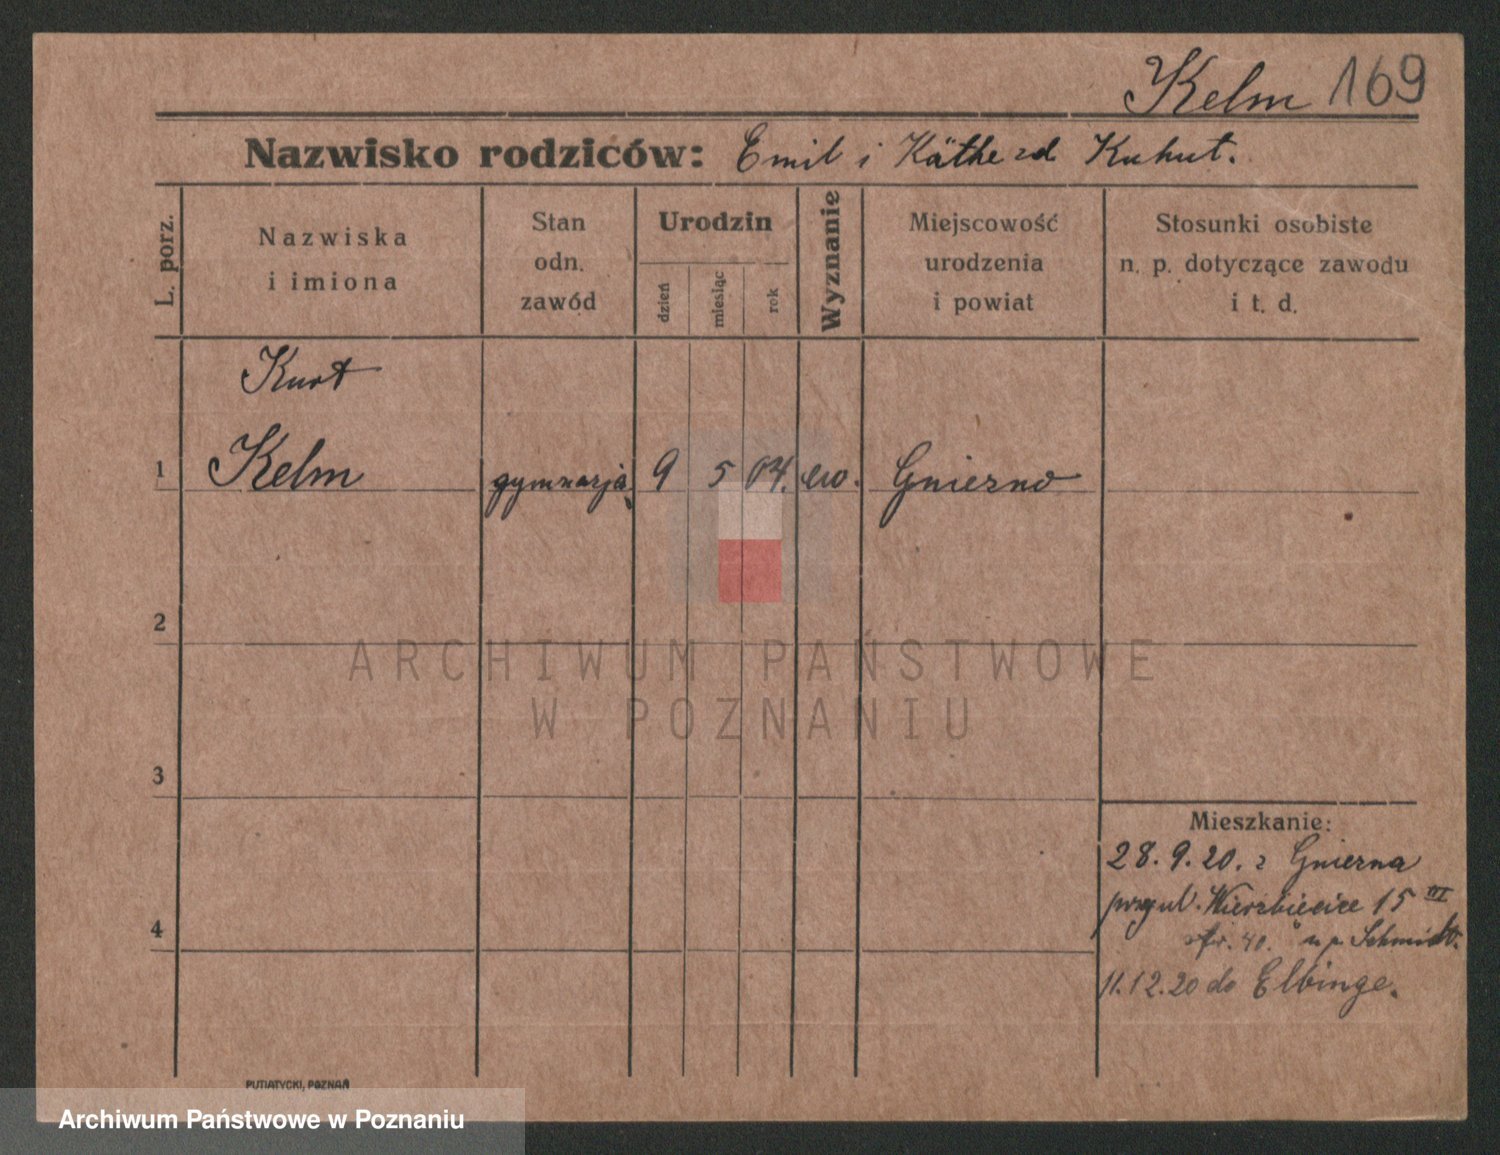 Kelm 169
Nazwisko rodziców: Emil i Käthe zd Kuhut.
L. porz.
Nazwiska
i imiona
Stan
odn.
zawód
Urodzin
dzień
miesiąc
rok
Wyznanie
Miejscowość
urodzenia
i powiat
Stosunki osobiste
n. p. dotyczące zawodu
i t. d.
Kurt
1 Kelm gymnazja. 9 5 04. ew. Gniezno
2
ARCHIWUM PAŃSTWOWE
W POZNANIU
3
4
Mieszkanie:
28.9.20. z Gniezna
przy ul. Wierzbięcice 15 III
40. Schmidt.
11.12.20 do Elbinge.
PUTIATYCKI, POZNAŃ
Archiwum Państwowe w Poznaniu